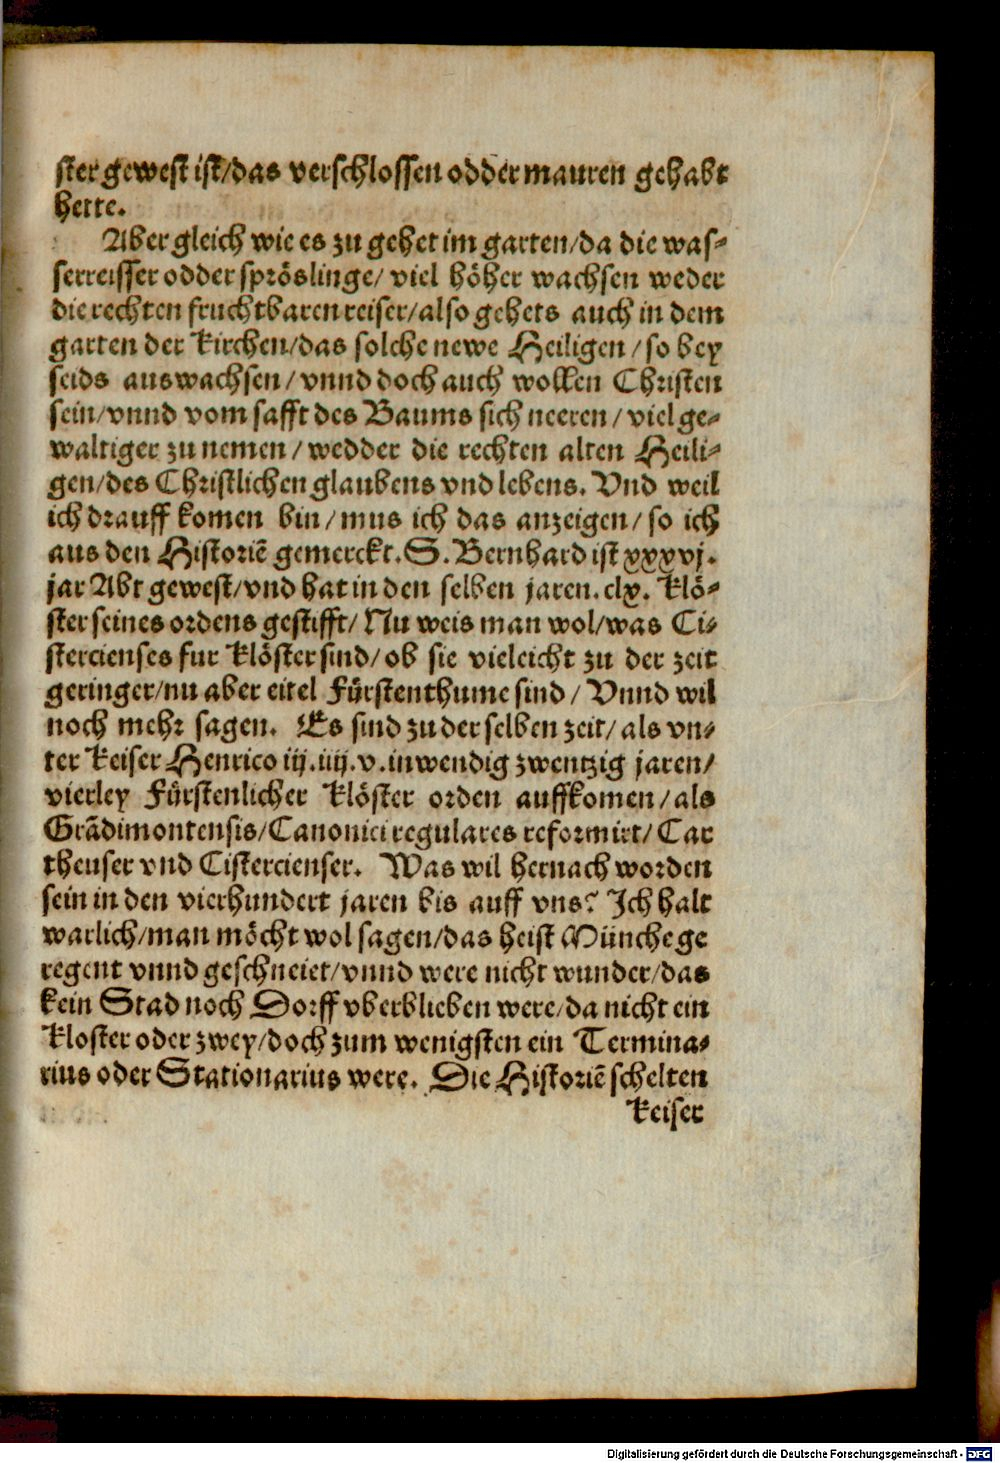 ster gewest ist/das verschlossen odder mauren gehabt
hette.
Aber gleich wie es zu gehet im garten/da die was-
serreisser odder spröslinge/ viel höher wachsen weder
die rechten fruchtbaren reiser/also gehets auch in dem
garten der Kirchen/das solche newe Heiligen/so bey
seids auswachsen/vnnd doch auch wollen Christen
sein/vnnd vom safft des Baums sich neeren/viel ge-
waltiger zu nemen/wedder die rechten alten Heili-
gen/des Christlichen glaubens vnd lebens. Vnd weil
ich drauff komen bin/mus ich das anzeigen/so ich
aus den Historiẽ gemerckt. S. Bernhard ist xxxvj.
jar Abt gewest/vnd hat in den selben jaren. clx. Klö-
ster seines ordens gestifft/Nu weis man wol/was Ci-
stercienses fur Klöster sind/ob sie vieleicht zu der zeit
geringer/nu aber eitel Fürstenthume sind/Vnnd wil
noch mehr sagen. Es sind zu der selben zeit/als vn-
ter Keiser Henrico iij.iiij.v.inwendig zwentzig jaren/
vierley Fürstenlicher Klöster orden auffkomen/als
Grãdimontensis/Canonici regulares reformirt/Car
theuser vnd Cistercienser. Was wil hernach worden
sein in den vierhundert jaren bis auff vns? Ich halt
warlich/man möcht wol sagen/das heist Münche ge
regent vnnd geschneiet/vnnd were nicht wunder/das
kein Stad noch Dorff vberblieben were/da nicht ein
Kloster oder zwey/doch zum wenigsten ein Termina-
rius oder Stationarius were. Die Historiẽ schelten
Keiser
Digitalisierung gefördert durch die Deutsche Forschungsgemeinschaft - DFG